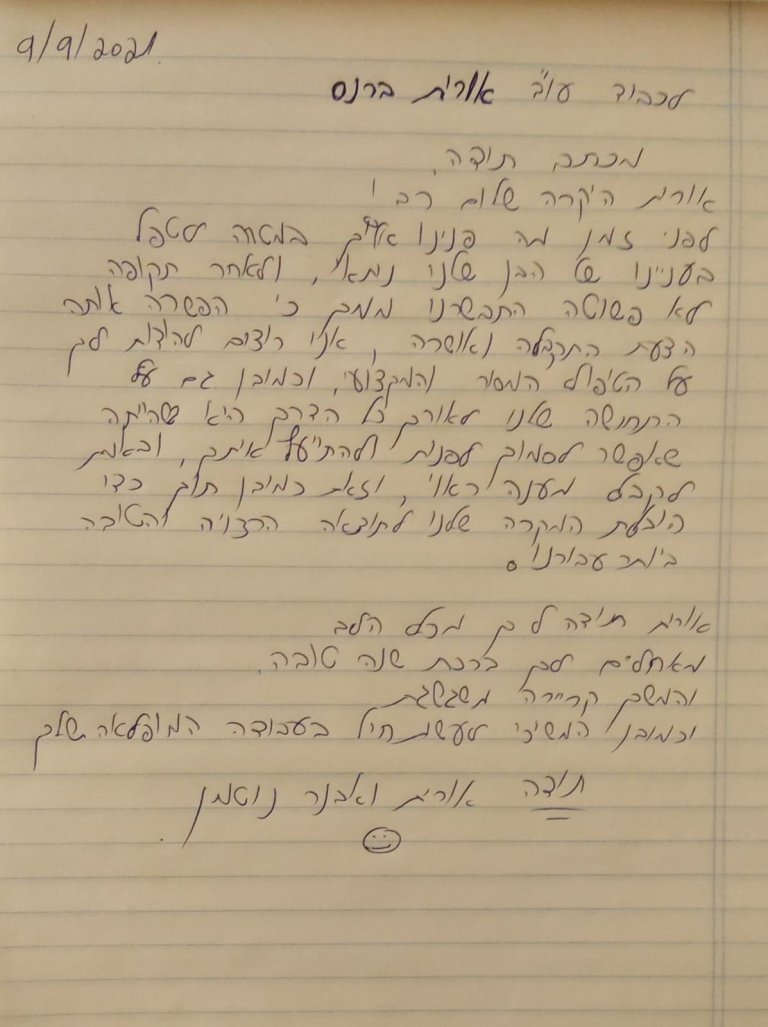 9/9/2021
לכבוד עו"ד אורית ברנס
מכתב תודה,
אורית היקרה שלום רב!
לפני זמן מה פנינו אליך במטרה שתטפל
בעניינו של הבן שלנו נתאי, ולאחר תקופה
לא פשוטה התבשרנו ממך כי הפשרה אותה
הצעת התקבלה ואושרה, אנו רוצים להודות לך
על הטיפול המסור והמקצועי, וכמובן גם על
התחושה שלנו לאורך כל הדרך היא שהייתה
שאפשר לסמוך לפנות ולהתייעץ איתך, ובאמת
לקבל מענה ראוי, וזאת כמובן תוך כדי
הובלת המקרה שלנו לתוצאה הרצויה והטובה
ביותר עבורנו.
אורית תודה לך מכל הלב
מאחלים לך ברכת שנה טובה.
והמשך קריירה משגשגת
וכמובן המשיכי לעשות חיל בעבודה המופלאה שלך
תודה אורית ואבנר גוטמן